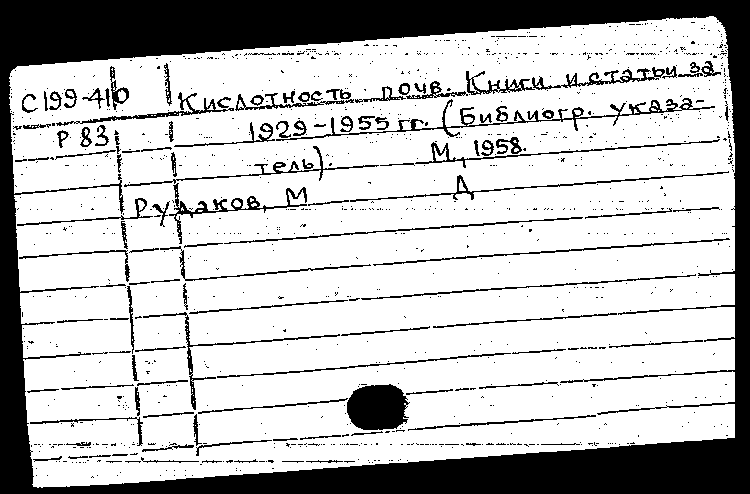 С199-410 Кислотность почв. Книги и статьи за
Р 83 1929-1955 гг. (Библиогр. указа-
тель). М., 1958.
Рудаков, М Д